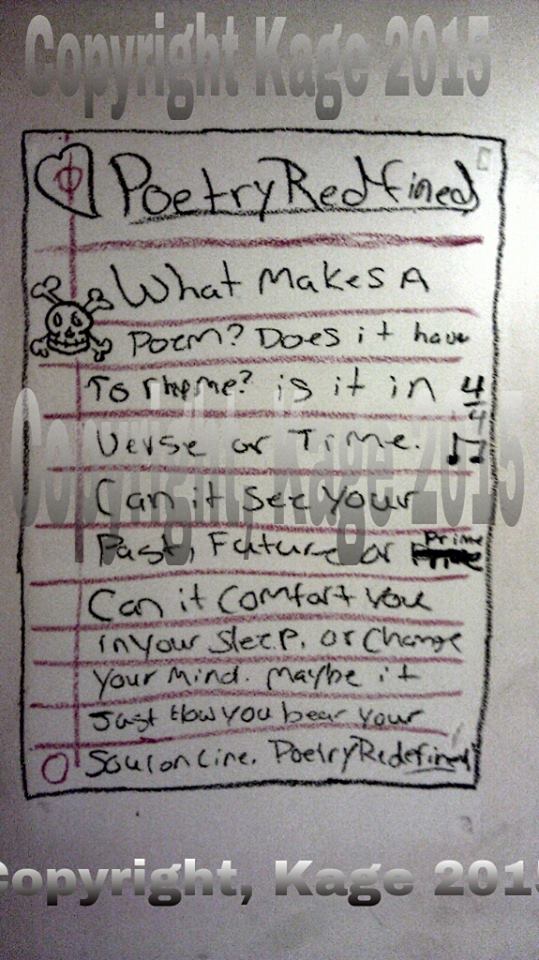 Copyright Kage 2015
PoetryRedfined
What Makes A
Poem? Does it have
To rhyme? is it in 4/4
Verse or Time.
Copyright, Kage 2015
Can it see your
Past, Future or Prime
Can it comfort you
in your sleep. or Change
your Mind. Maybe it
Just How you bear your
Soul on Line. PoetryRedefined
Copyright, Kage 2015